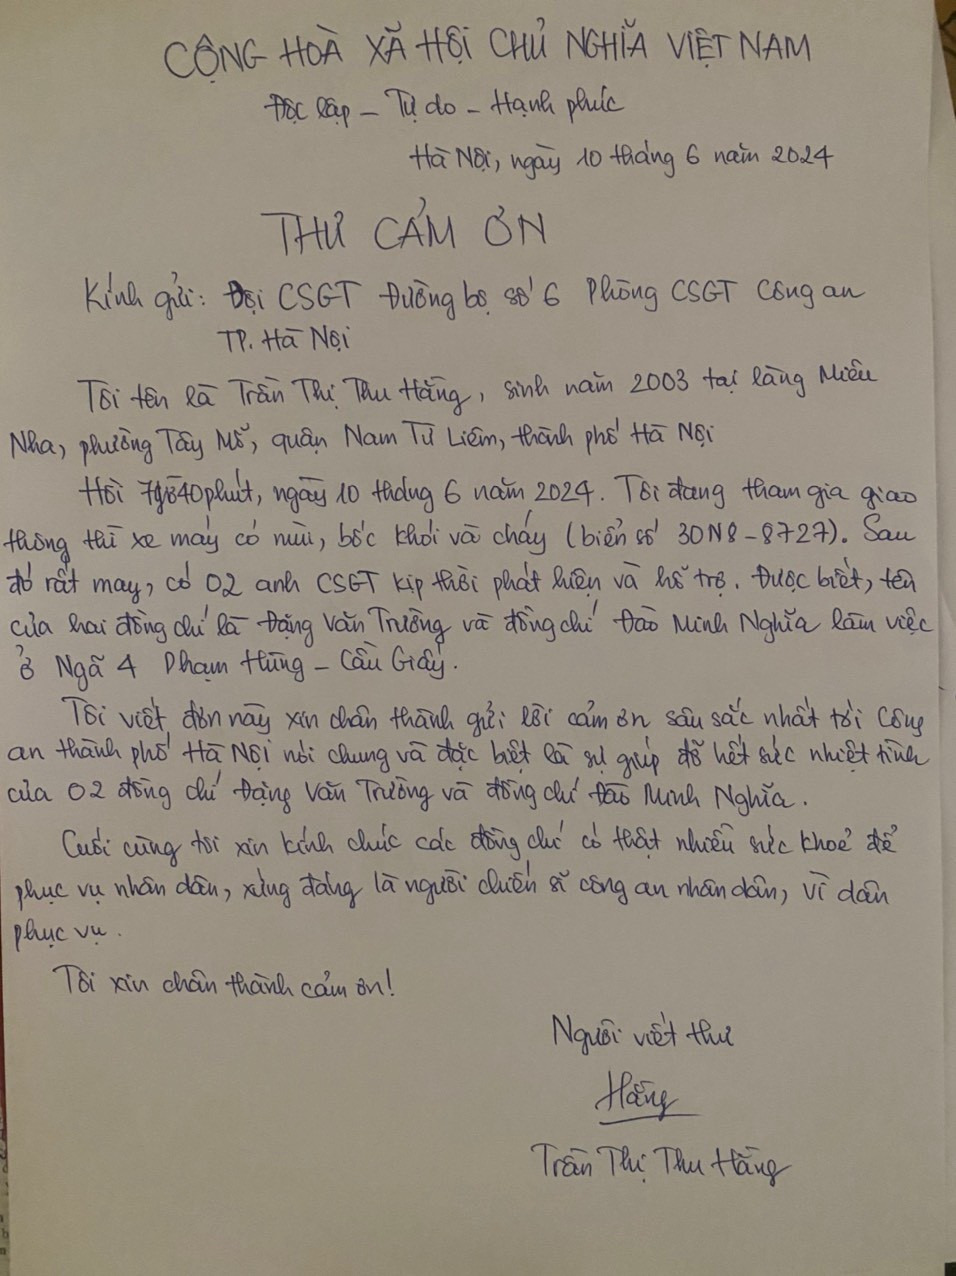 CỘNG HOÀ XÃ HỘI CHỦ NGHĨA VIỆT NAM
Độc lập - Tự do - Hạnh phúc
Hà Nội, ngày 10 tháng 6 năm 2024
THƯ CẢM ƠN
Kính gửi: Đội CSGT Đường bộ số 6 Phòng CSGT Công an
TP. Hà Nội
Tôi tên là Trần Thị Thu Hằng, sinh năm 2003 tại làng Miêu
Nha, phường Tây Mỗ, quận Nam Từ Liêm, thành phố Hà Nội
Hồi 7giờ40phút, ngày 10 tháng 6 năm 2024. Tôi đang tham gia giao
thông thì xe máy có mùi, bốc khói và cháy (biển số 30N8-8727). Sau
đó rất may, có 02 anh CSGT kịp thời phát hiện và hỗ trợ. Được biết, tên
của hai đồng chí là Đặng Văn Trường và đồng chí Đào Minh Nghĩa làm việc
ở Ngã 4 Phạm Hùng - Cầu Giấy.
Tôi viết đơn này xin chân thành gửi lời cảm ơn sâu sắc nhất tới Công
an thành phố Hà Nội nói chung và đặc biệt là sự giúp đỡ hết sức nhiệt tình
của 02 đồng chí Đặng Văn Trường và đồng chí Đào Minh Nghĩa.
Cuối cùng tôi xin kính chúc các đồng chí có thật nhiều sức khoẻ để
phục vụ nhân dân, xứng đáng là người chiến sĩ công an nhân dân, vì dân
phục vụ.
Tôi xin chân thành cảm ơn!
Người viết thư
Hằng
Trần Thị Thu Hằng